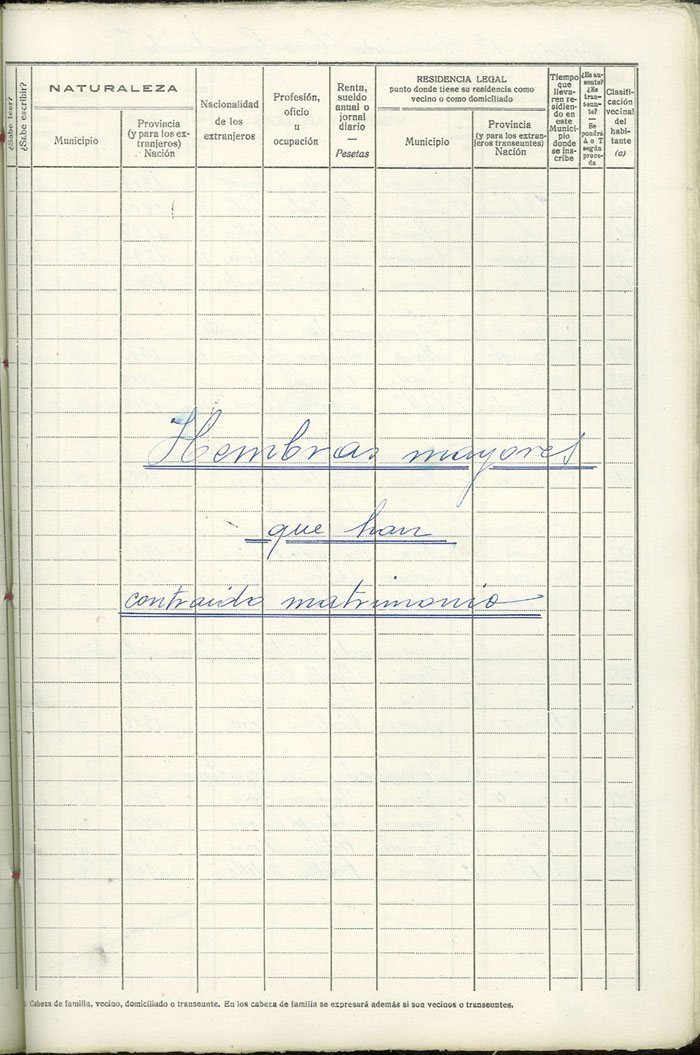 ¿Sabe leer?
¿Sabe escribir?
NATURALEZA
Municipio
Provincia
(y para los ex-
tranjeros)
Nación
Nacionalidad
de los
extranjeros
Profesión,
oficio
u
ocupación
Renta,
sueldo
anual o
jornal
diario
—
Pesetas
RESIDENCIA LEGAL
punto donde tiene su residencia como
vecino o como domiciliado
Municipio
Provincia
(y para los extran-
jeros transeuntes)
Nación
Tiempo
que
lleva-
ren re-
sidien-
do en
este
Munici-
pio
donde
se ins-
cribe
¿Es au-
sente?
¿Es
tran-
seun-
te?
—
Se
pondrá
A o T
según
proce-
da
Clasifi-
cación
vecinal
del
habi-
tante
(a)
Hembras mayores
que han
contraido matrimonio
Cabeza de familia, vecino, domiciliado o transeunte. En los cabeza de familia se expresará además si son vecinos o transeuntes.